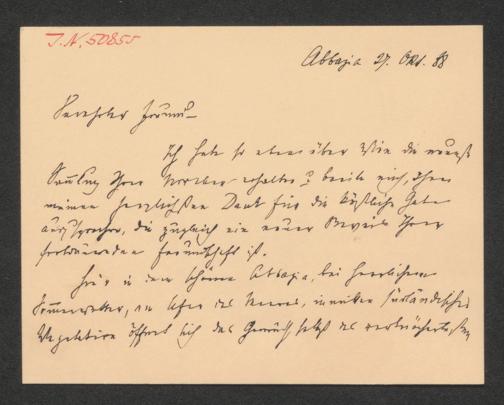 J.N. 50855
Abbazia 27. Okt. 88
Verehrter Freund
Ich habe so eben über Wien die neueste
Samlung Ihrer erhalten u beeile mich, Ihnen
meinen herzlichsten Dank für die köstliche Gabe
auszusprechen, die zugleich ein neuer Beweis Ihrer
fortdauernden Freundschaft ist.
Hier in dem schönen Abbazia, bei herrlichem
Sommerwetter, am Ufer des Meeres, inmitten südländischer
Vegetation öffnet sich das Gemüth selbst des